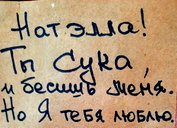 Натэлла!
Ты Сука,
и бесишь меня.
Но Я тебя люблю.